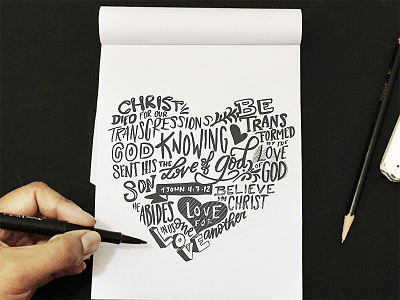 CHRIST
DIED FOR OUR
TRANSGRESSIONS
GOD
SENT HIS
SON
KNOWING
the Love of God
BE
TRANSFORMED
BY THE
LOVE
OF
GOD
1 JOHN 4:7-12
BELIEVE
IN CHRIST
HE
ABIDES
IN US
LOVE
FOR
one another
LOVE